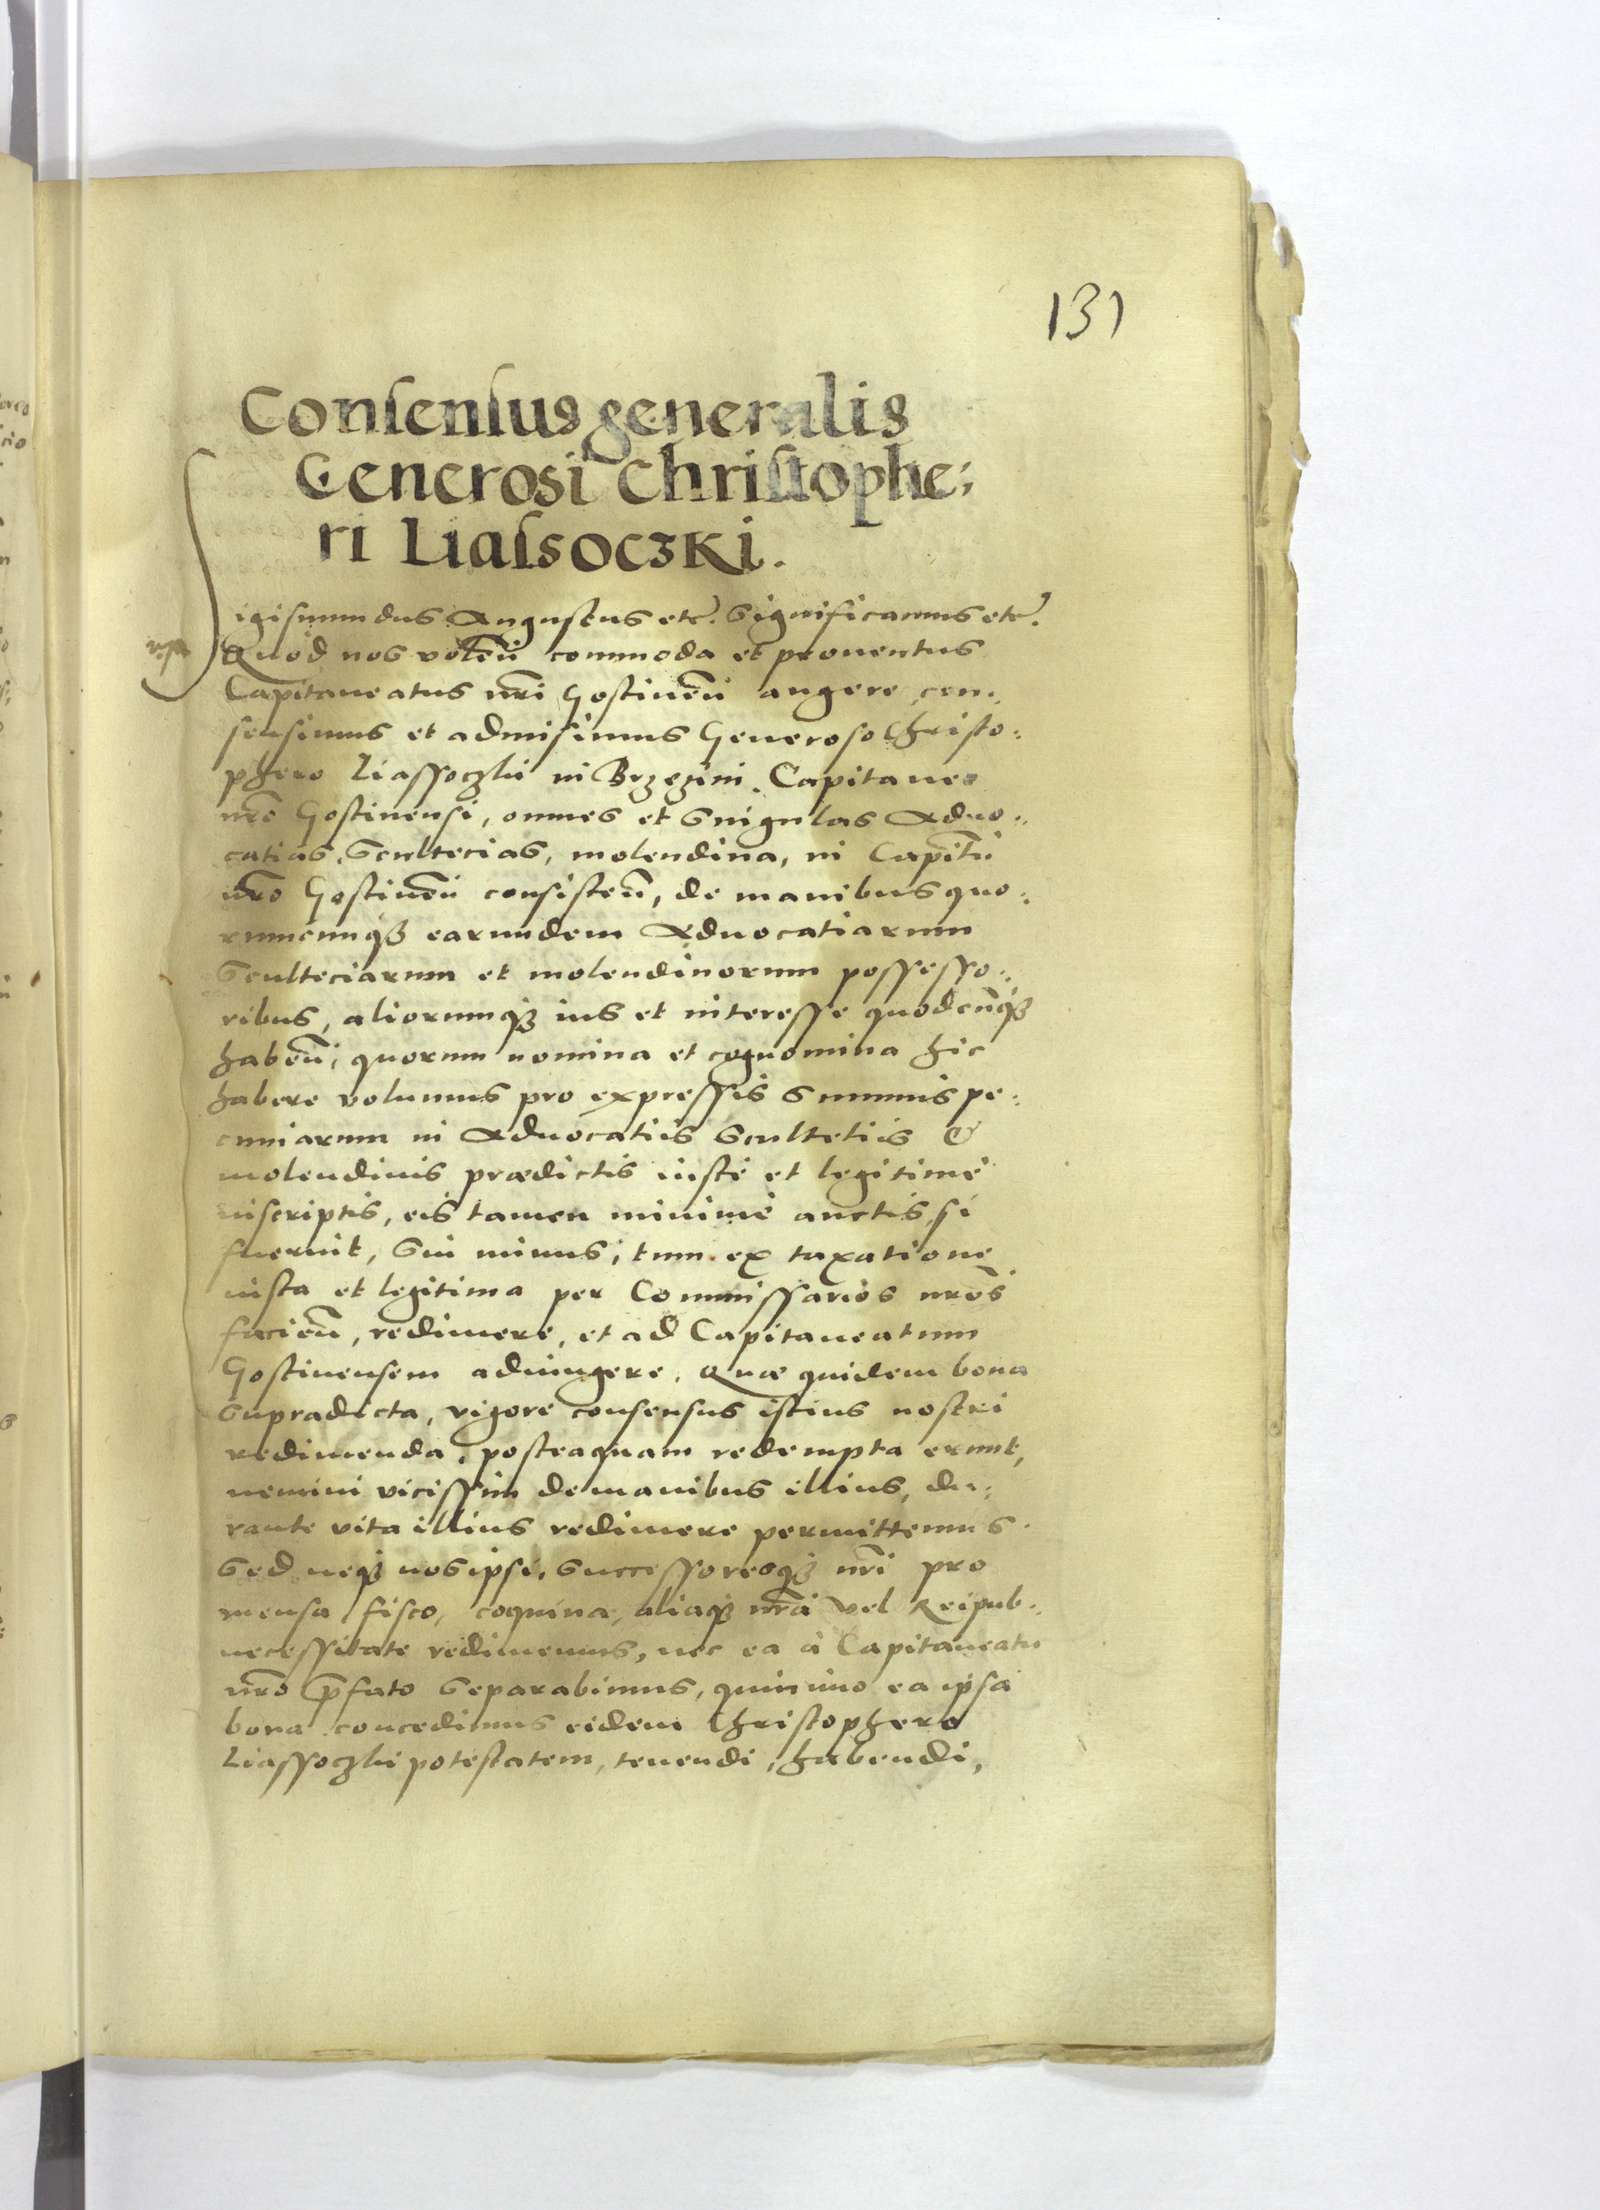 131
Consensus generalis
Generosi Christophe;
ri Liassoczki.
Sigismundus Augustus etc. Significamus etc.
Quod nos volen̄ commoda et prouentus
Capitaneatus nr̄i Gostinen̄ augere, con„
sensimus et admisimus Generoso Christo:
phero Liassoczki in Brzezini Capitaneo
nr̄o Gostinensi, omnes et singulas Aduo„
catias, Scultecias, molendina, in Capit̄u
nr̄o Gostinen̄ consisten̄, de manibus quo:
rumcunqꝫ earundem Aduocatiarum
Sculteciarum et molendinorum possesso„
ribus, aliorumqꝫ ius et interesse quodcunqꝫ
haben̄, quorum nomina et cognomina hic
habere volumus pro expressis summis pe:
cuniarum in Aduocatiis Scultetiis &
molendinis prædictis iustè et legitimè
inscriptis, eis tamen minimè auctis, si
fuerint, Sin minus, tum ex taxatione
iusta et legitima per Commissarios nr̄os
facien̄, redimere, et ad Capitaneatum
Gostinensem adiungere. Quæ quidem bona
supradicta, vigore consensus istius nostri
redimenda, posteaquam redempta erunt,
nemini vicissim de manibus illius, du:
rante vita illius redimere permittemus.
Sed neqꝫ nos ipsi, Successoresqꝫ nr̄i pro
mensa fisco, coquina, aliaqꝫ nr̄a vel Reipub„
necessitate redimemus, nec ea à Capitaneatu
nr̄o p̄fato separabimus, quinimo ea ipsa
bona concedimus eidem Christophero
Liassoczki potestatem, tenendi, habendi,